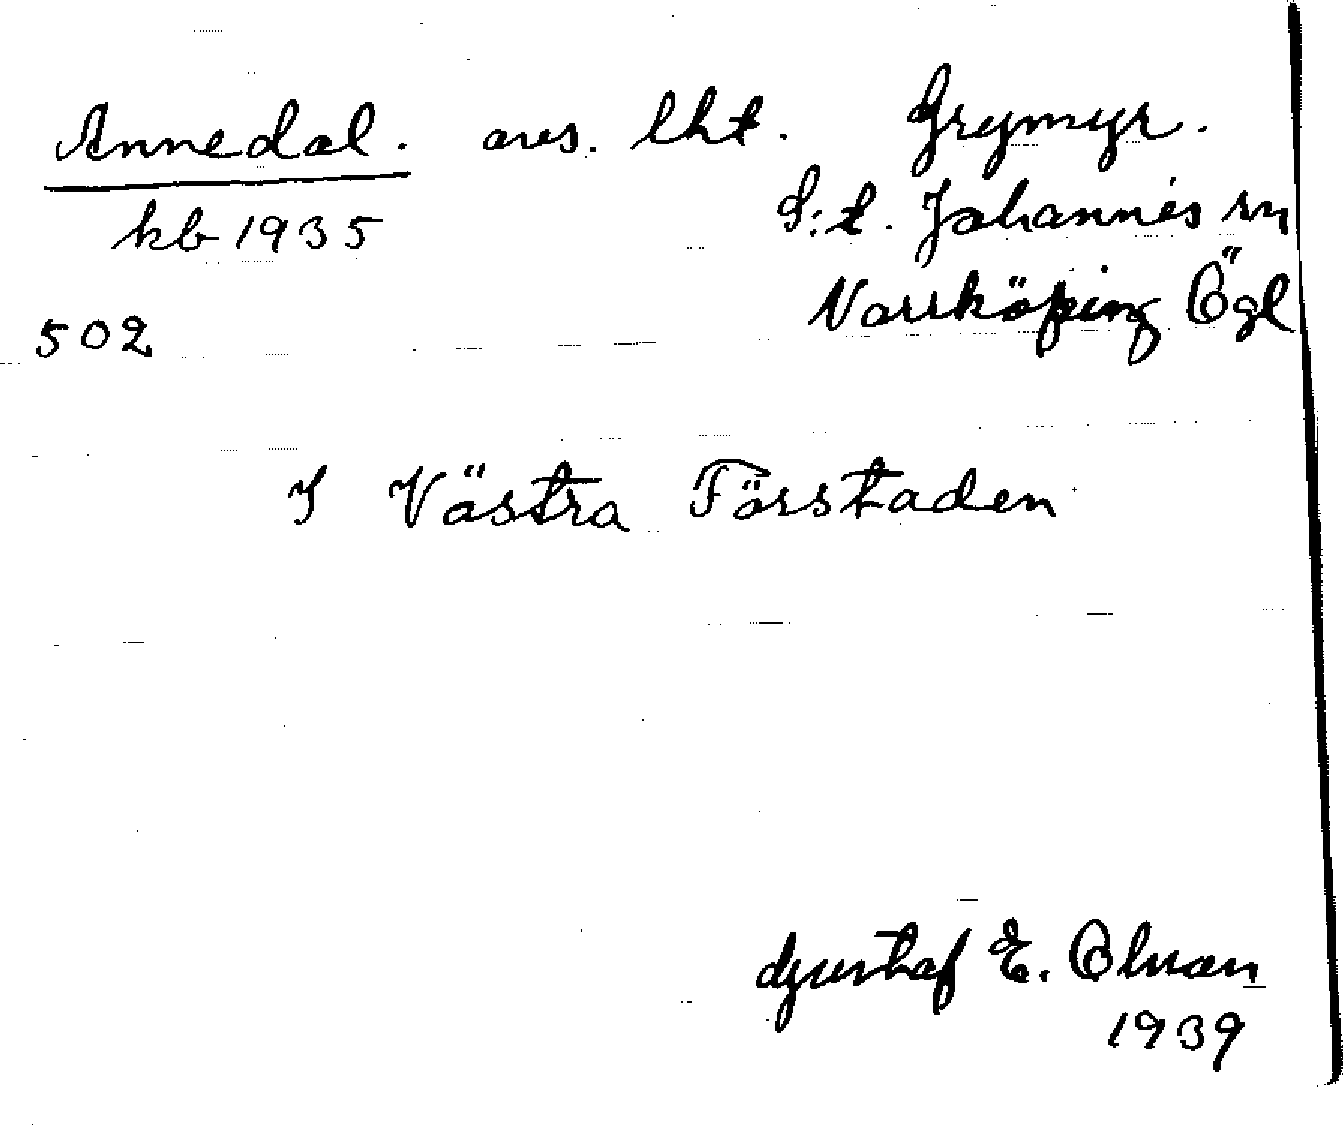 Annedal. avs. lht. Grymyr.
kb 1935 S:t. Johannes sn
502 Norrköping Ögl
I Västra Förstaden
Gustaf E. Olsson
1939